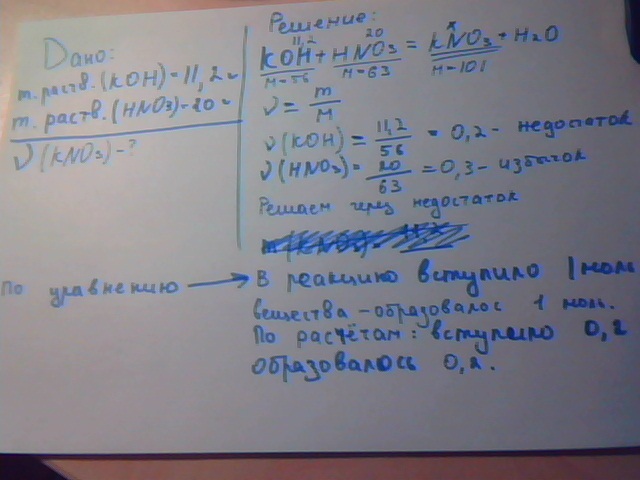 Дано:
m. раств. (KOH) = 11,2 г
m. раств. (HNO3) - 20 г
ν (KNO3) - ?
Решение:
11,2 20 x
KOH + HNO3 = KNO3 + H2O
M=56 M=63 M=101
ν = m/M
ν (KOH) = 11,2/56 = 0,2 - недостаток
ν (HNO3) = 20/63 = 0,3 - избыток
Решаем через недостаток
По уравнению → В реакцию вступило 1 моль
вещества - образовалос 1 моль.
По расчётам: вступило 0,2
образовалось 0,2.